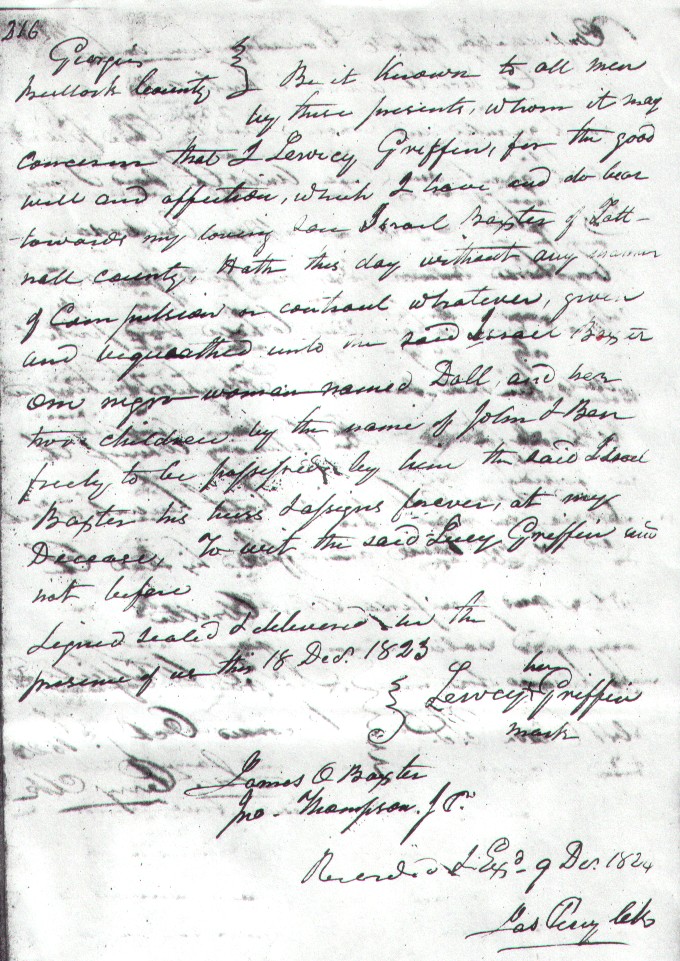 216
Georgia
Bullock County } Be it Known to all men
by these presents, whom it may
concern that I Lewicy Griffin, for the good
will and affection, which I have and do bear
towards my loving son Israel Baxter of Tatt-
nall county, Hath this day without any manner
of Compulsion or contraul whatever, given
and bequeathed unto the said Israel Baxter
one negro woman named Doll, and her
two children by the name of John & Ben
freely to be possessed by him the said Israel
Baxter his heirs & assigns forever, at my
Decease, To wit the said Lucy Griffin and
not before
Signed sealed & delivered in the
presence of us this 18 Decr. 1823
her
Lewcy + Griffin
mark
James O Baxter
Jno. Thompson. J. P.
Recorded & Exd. 9 Dec. 1824
Jas Perry Clk